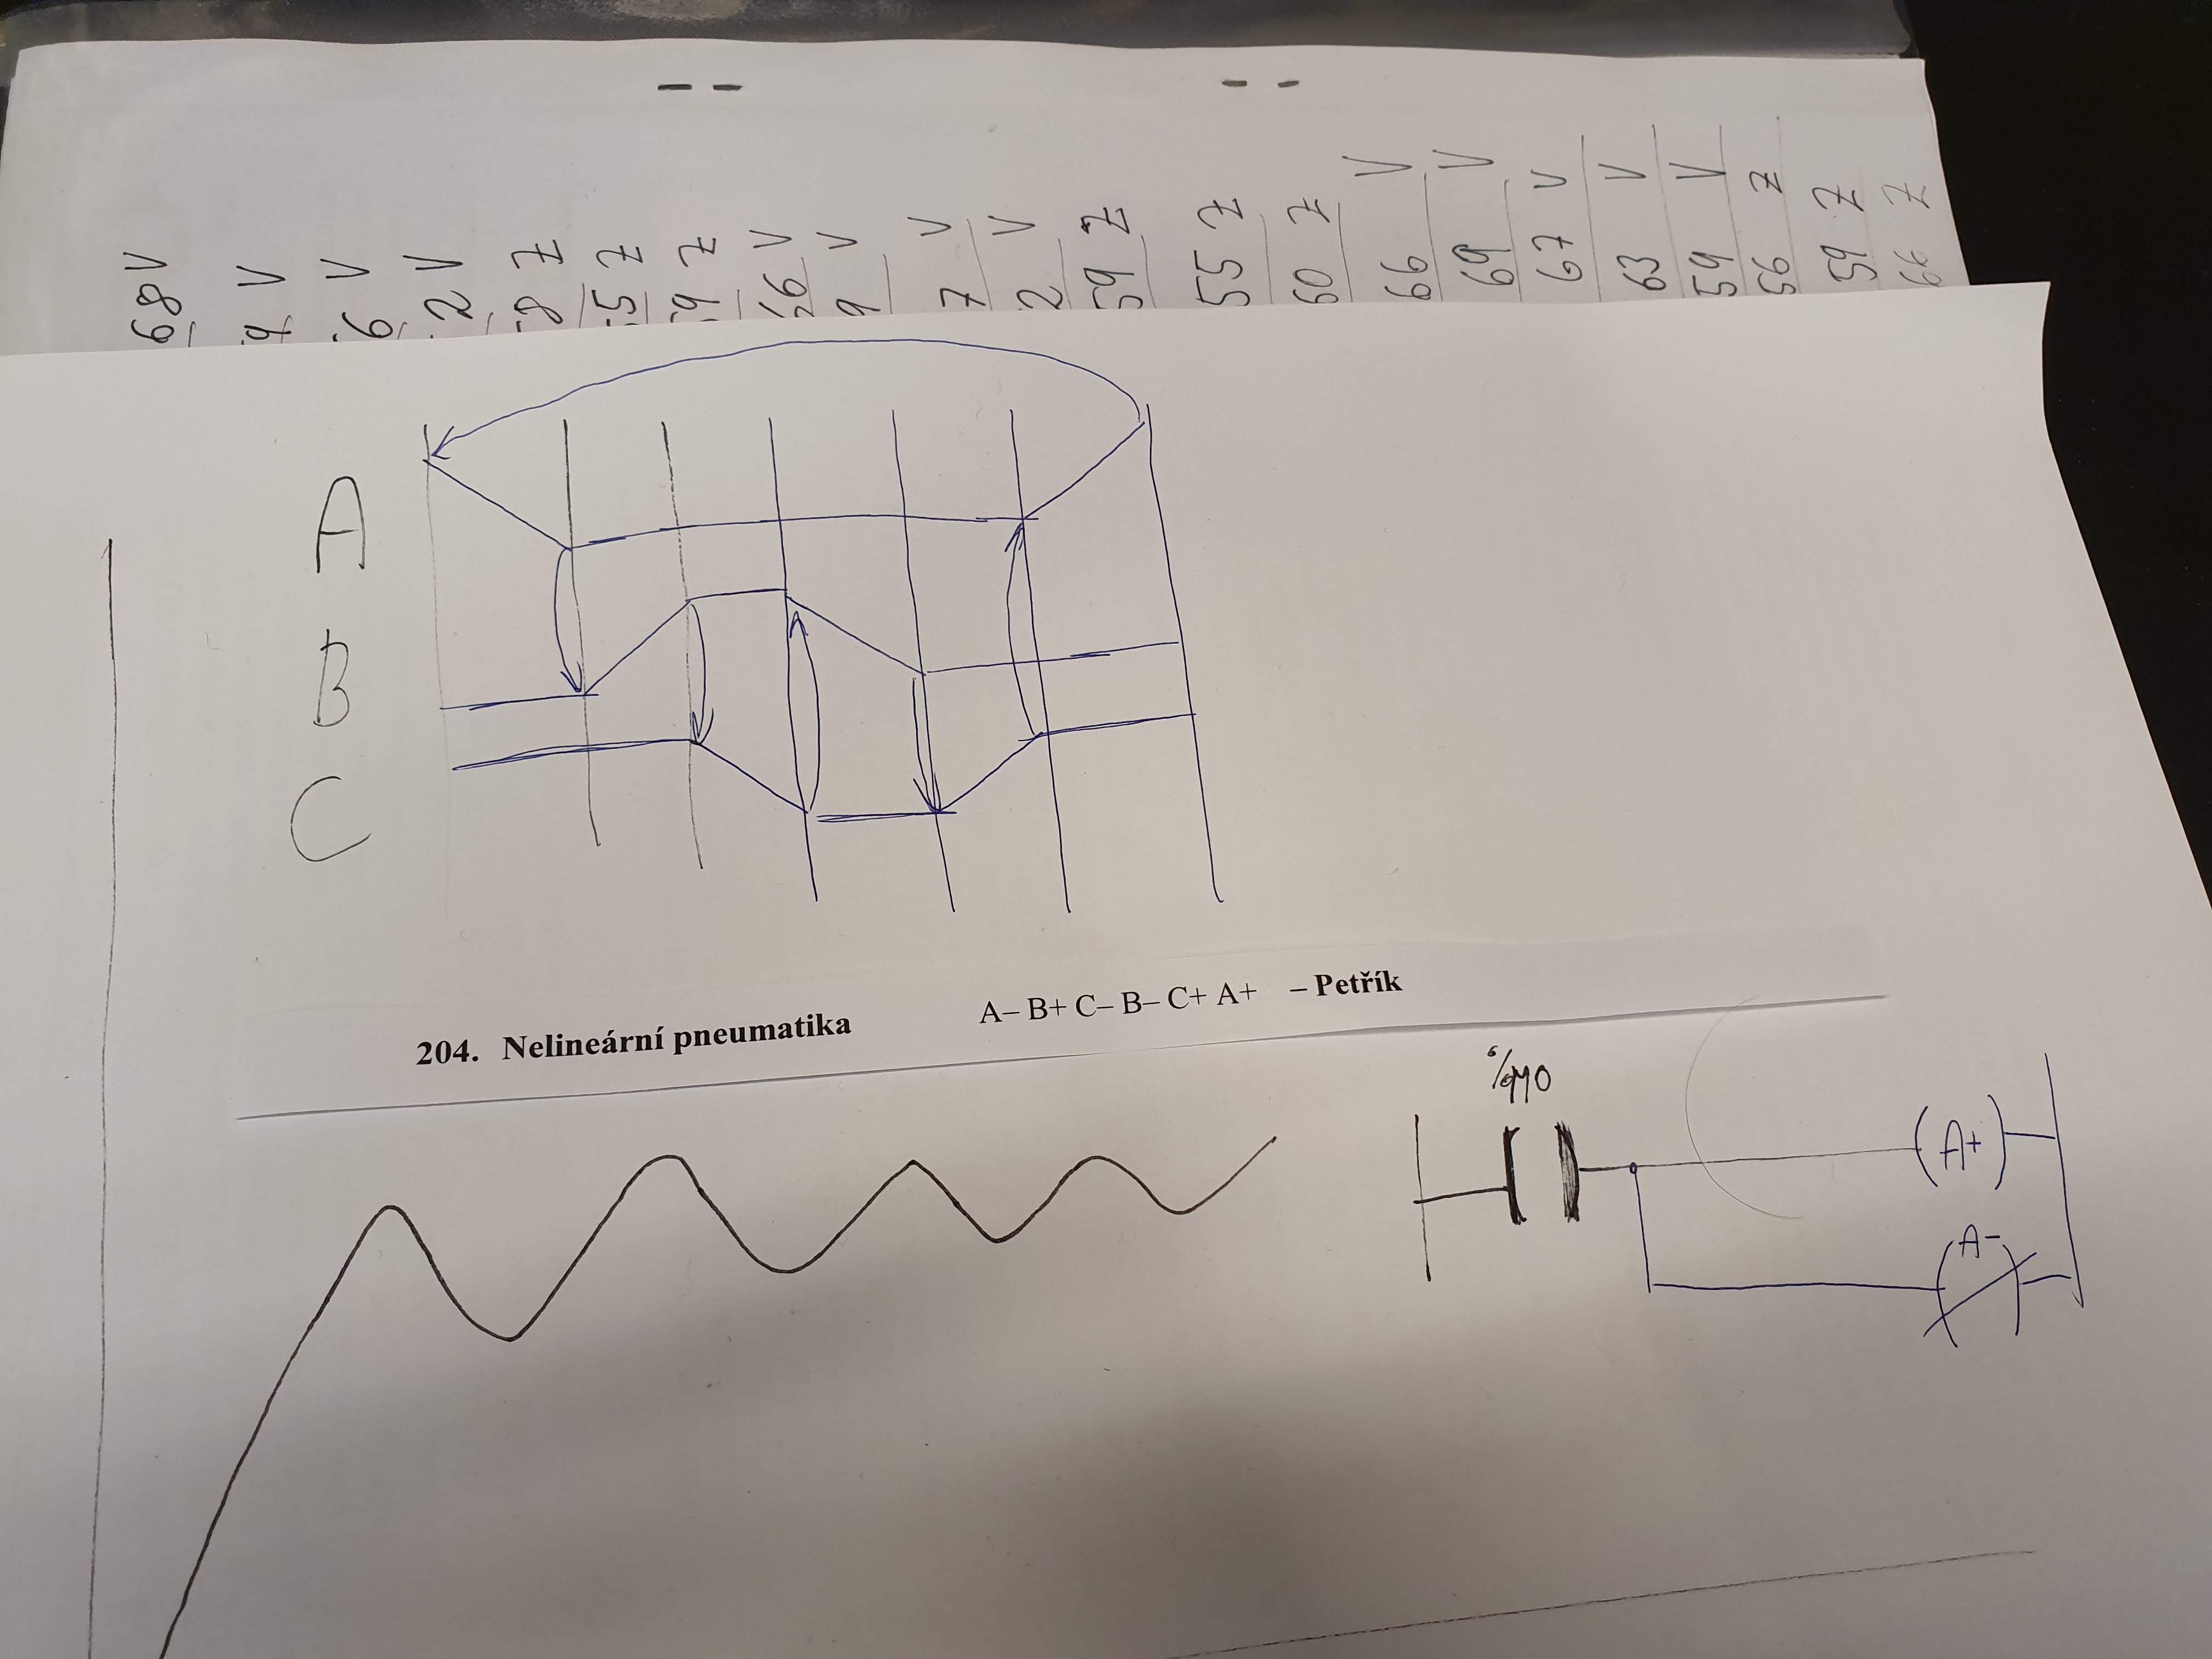 68 V
V
6 V
2 V
8 Z
55 Z
59 Z
56 V
9 V
7 V
2 V
59 Z
55 Z
60 Z
66 V
69 V
67 V
63 V
59 V
56 Z
59 Z
66 Z
A
B
C
204. Nelineární pneumatika A– B+ C– B– C+ A+ – Petřík
A+
A–